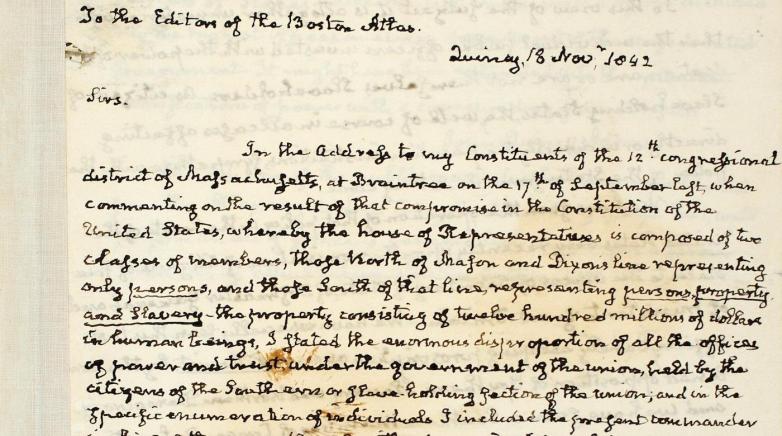 To the Editors of the Boston Atlas.
Quincy, 18 Nov.r 1842
Sirs.
In the Address to my Constituents of the 12th congressional
district of Massachusetts, at Braintree on the 17th of September last, when
commenting on the result of that compromise in the Constitution of the
United States, whereby the house of Representatives is composed of two
classes of members, those North of Mason and Dixons line representing
only persons, and those South of that line, representing persons, property
and Slavery - the property consisting of twelve hundred millions of dollars
in human beings, I stated the enormous disproportion of all the offices
of power and trust, under the government of the union, held by the
citizens of the Southern or slave-holding section of the union; and in the
specific enumeration of individuals I included the present commander